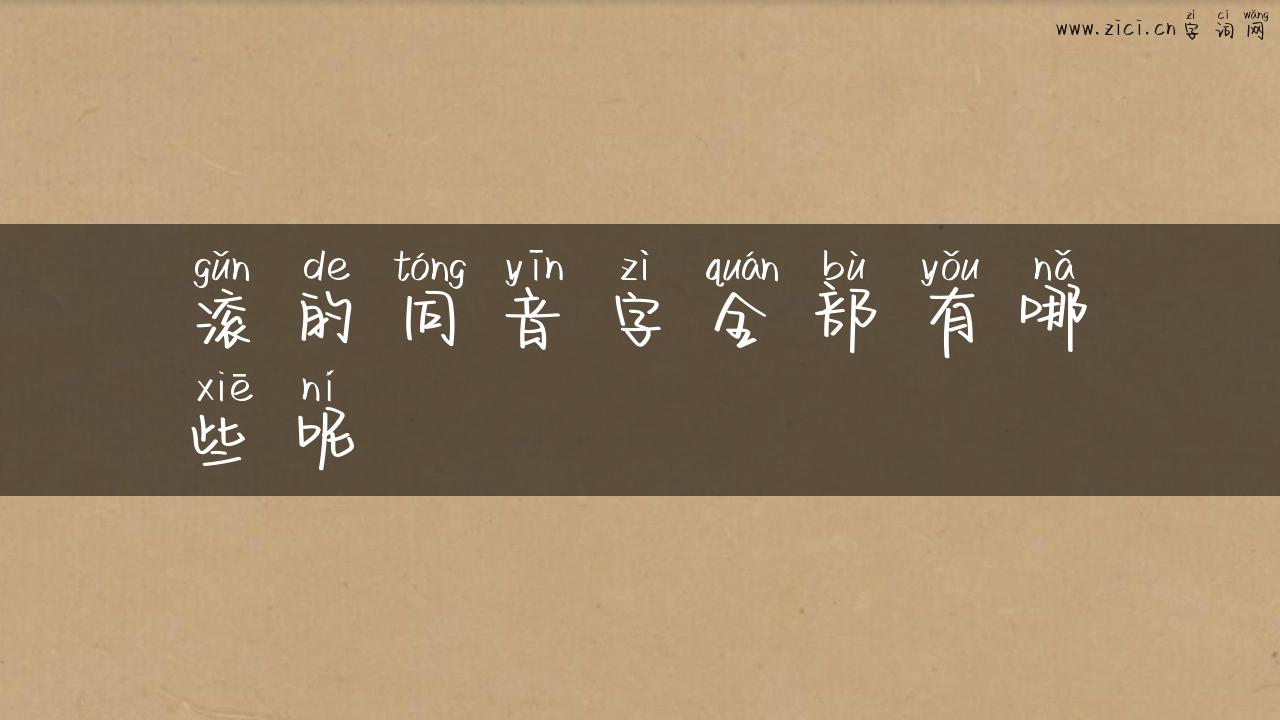 zì cí wǎng
www.zici.cn 字词网
gǔn de tóng yīn zì quán bù yǒu nǎ
滚的同音字全部有哪
xiē ní
些呢